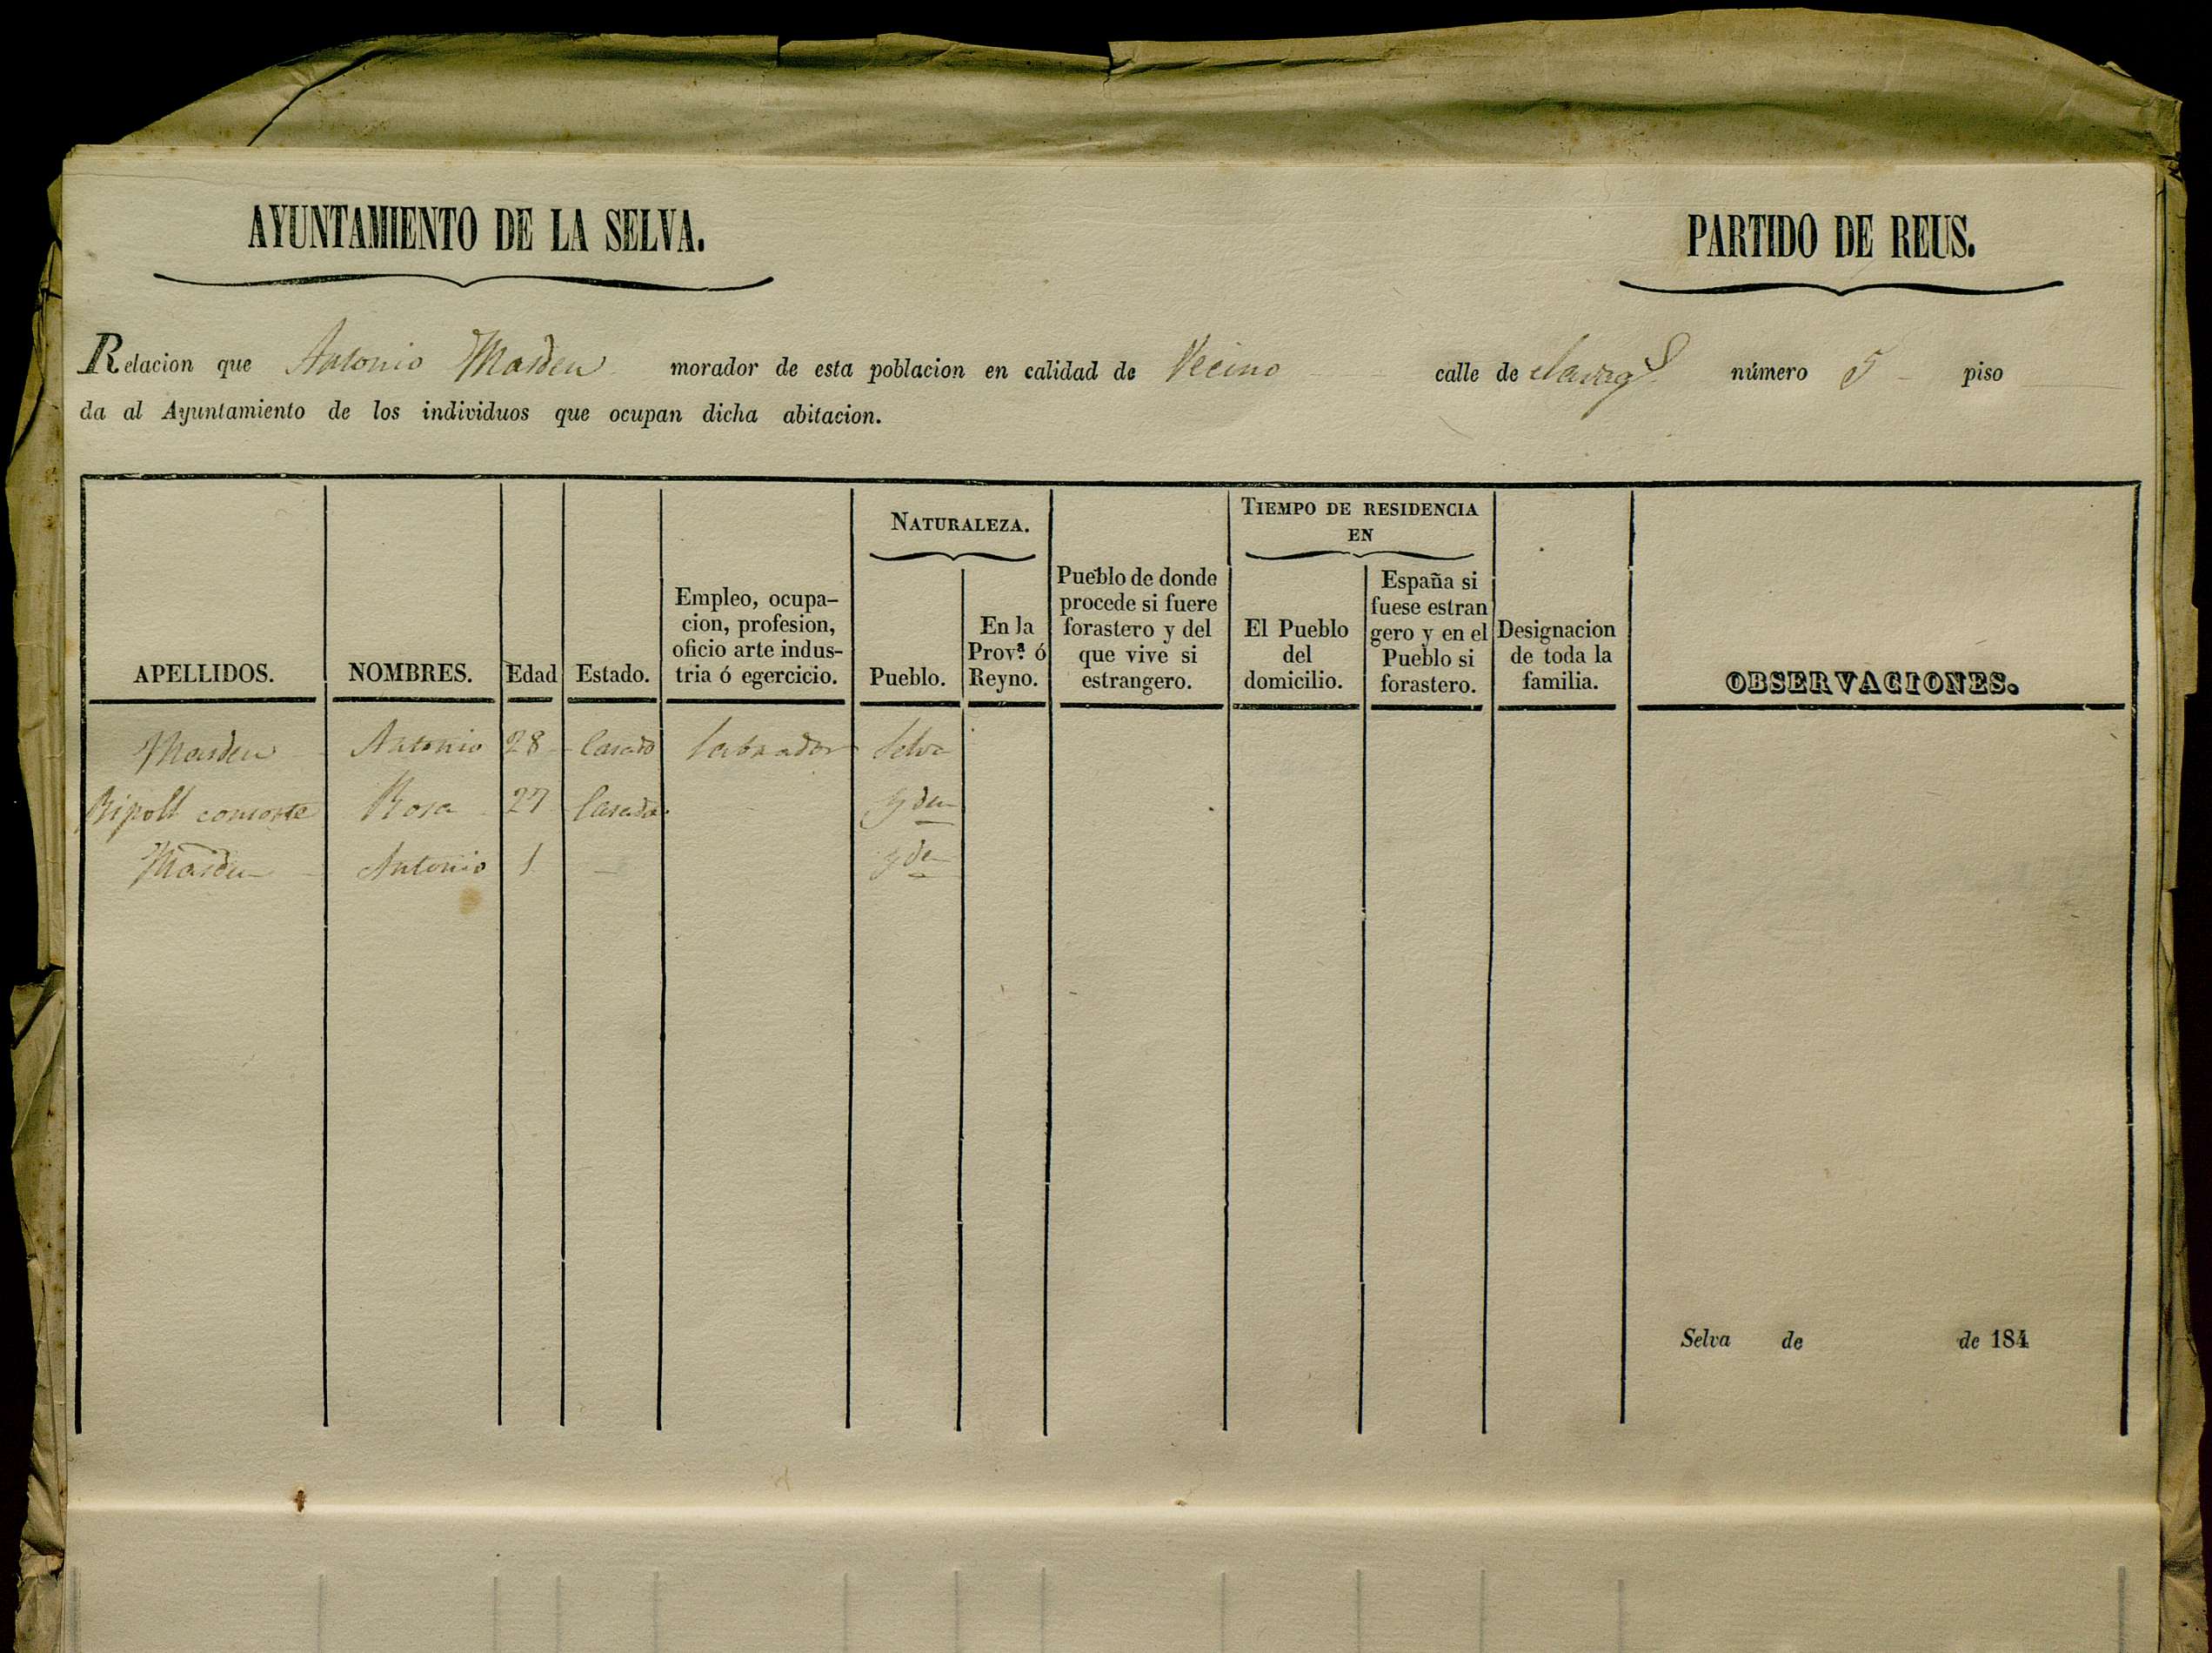 AYUNTAMIENTO DE LA SELVA.
PARTIDO DE REUS.
Relacion que Antonio Masdeu morador de esta poblacion en calidad de Vecino calle de número 5 piso
da al Ayuntamiento de los individuos que ocupan dicha abitacion.
APELLIDOS.
NOMBRES.
Edad
Estado.
Empleo, ocupa-
cion, profesion,
oficio arte indus-
tria ó egercicio.
NATURALEZA.
Pueblo.
En la
Prov.ª ó
Reyno.
Pueblo de donde
procede si fuere
forastero y del
que vive si
estrangero.
TIEMPO DE RESIDENCIA
EN
El Pueblo
del
domicilio.
España si
fuese estran
gero y en el
Pueblo si
forastero.
Designacion
de toda la
familia.
OBSERVACIONES.
Masdeu Antonio 28 Casado labrador Selva
Ripoll consorte Rosa 27 Casada ydem
Masdeu Antonio 1 ydem
Selva de de 184